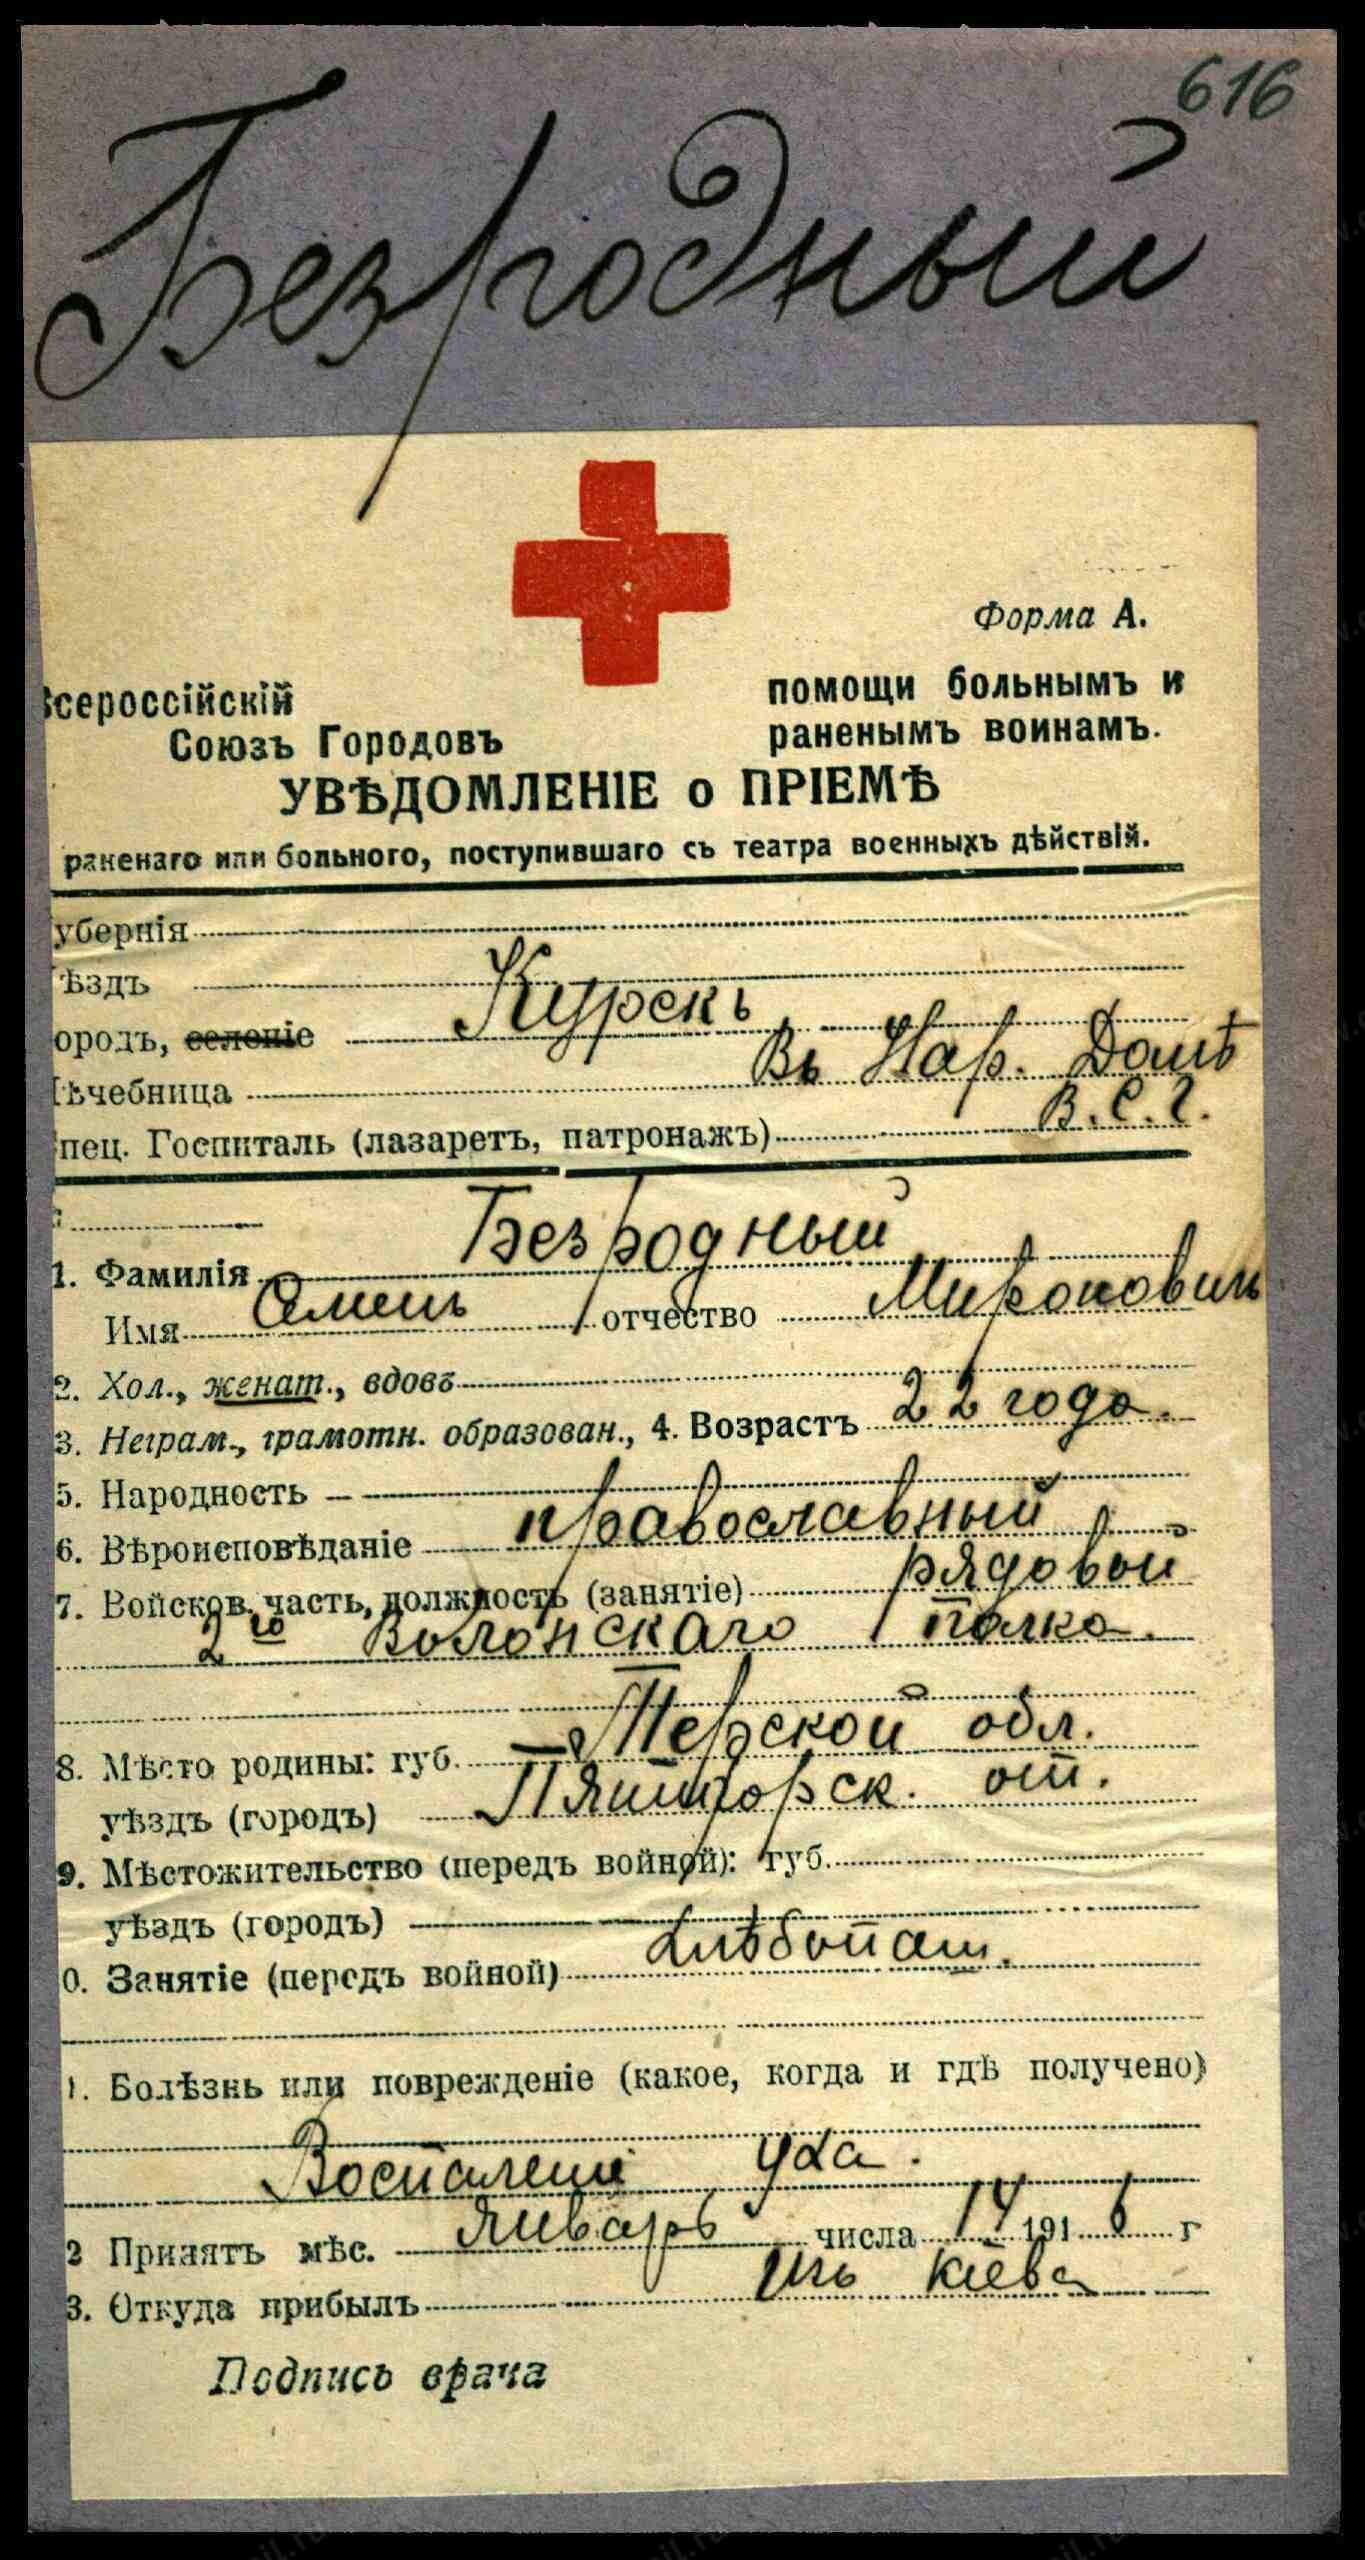 616
Безродный
Форма А.
Всероссійскій
Союзъ Городовъ
помощи больнымъ и
раненымъ воинамъ.
УВѢДОМЛЕНІЕ о ПРІЕМѢ
раненаго или больного, поступившаго съ театра военныхъ дѣйствій.
убернія
ѣздъ
ородъ, селеніе Курскъ
ѣчебница Въ Нар. Домѣ
пец. Госпиталь (лазаретъ, патронажъ) В.С.Г.
1. Фамилія Безродный
Имя Семенъ отчество Мироновичъ
2. Хол., женат., вдовъ
3. Неграм., грамотн. образован., 4. Возрастъ 22 года.
5. Народность
6. Вѣроисповѣданіе православный
7. Войсков. часть, должность (занятіе) рядовой
2го полка.
8. Мѣсто родины: губ. Терской обл.
уѣздъ (городъ) Пятигорск. от.
9. Мѣстожительство (передъ войной): губ.
уѣздъ (городъ)
0. Занятіе (передъ войной) хлѣбопаш.
1. Болѣзнь или поврежденіе (какое, когда и гдѣ получено)
Воспаленіе уха.
2 Принятъ мѣс. Январь числа 14 1916 г
3. Откуда прибылъ Изъ Кіева
Подпись врача